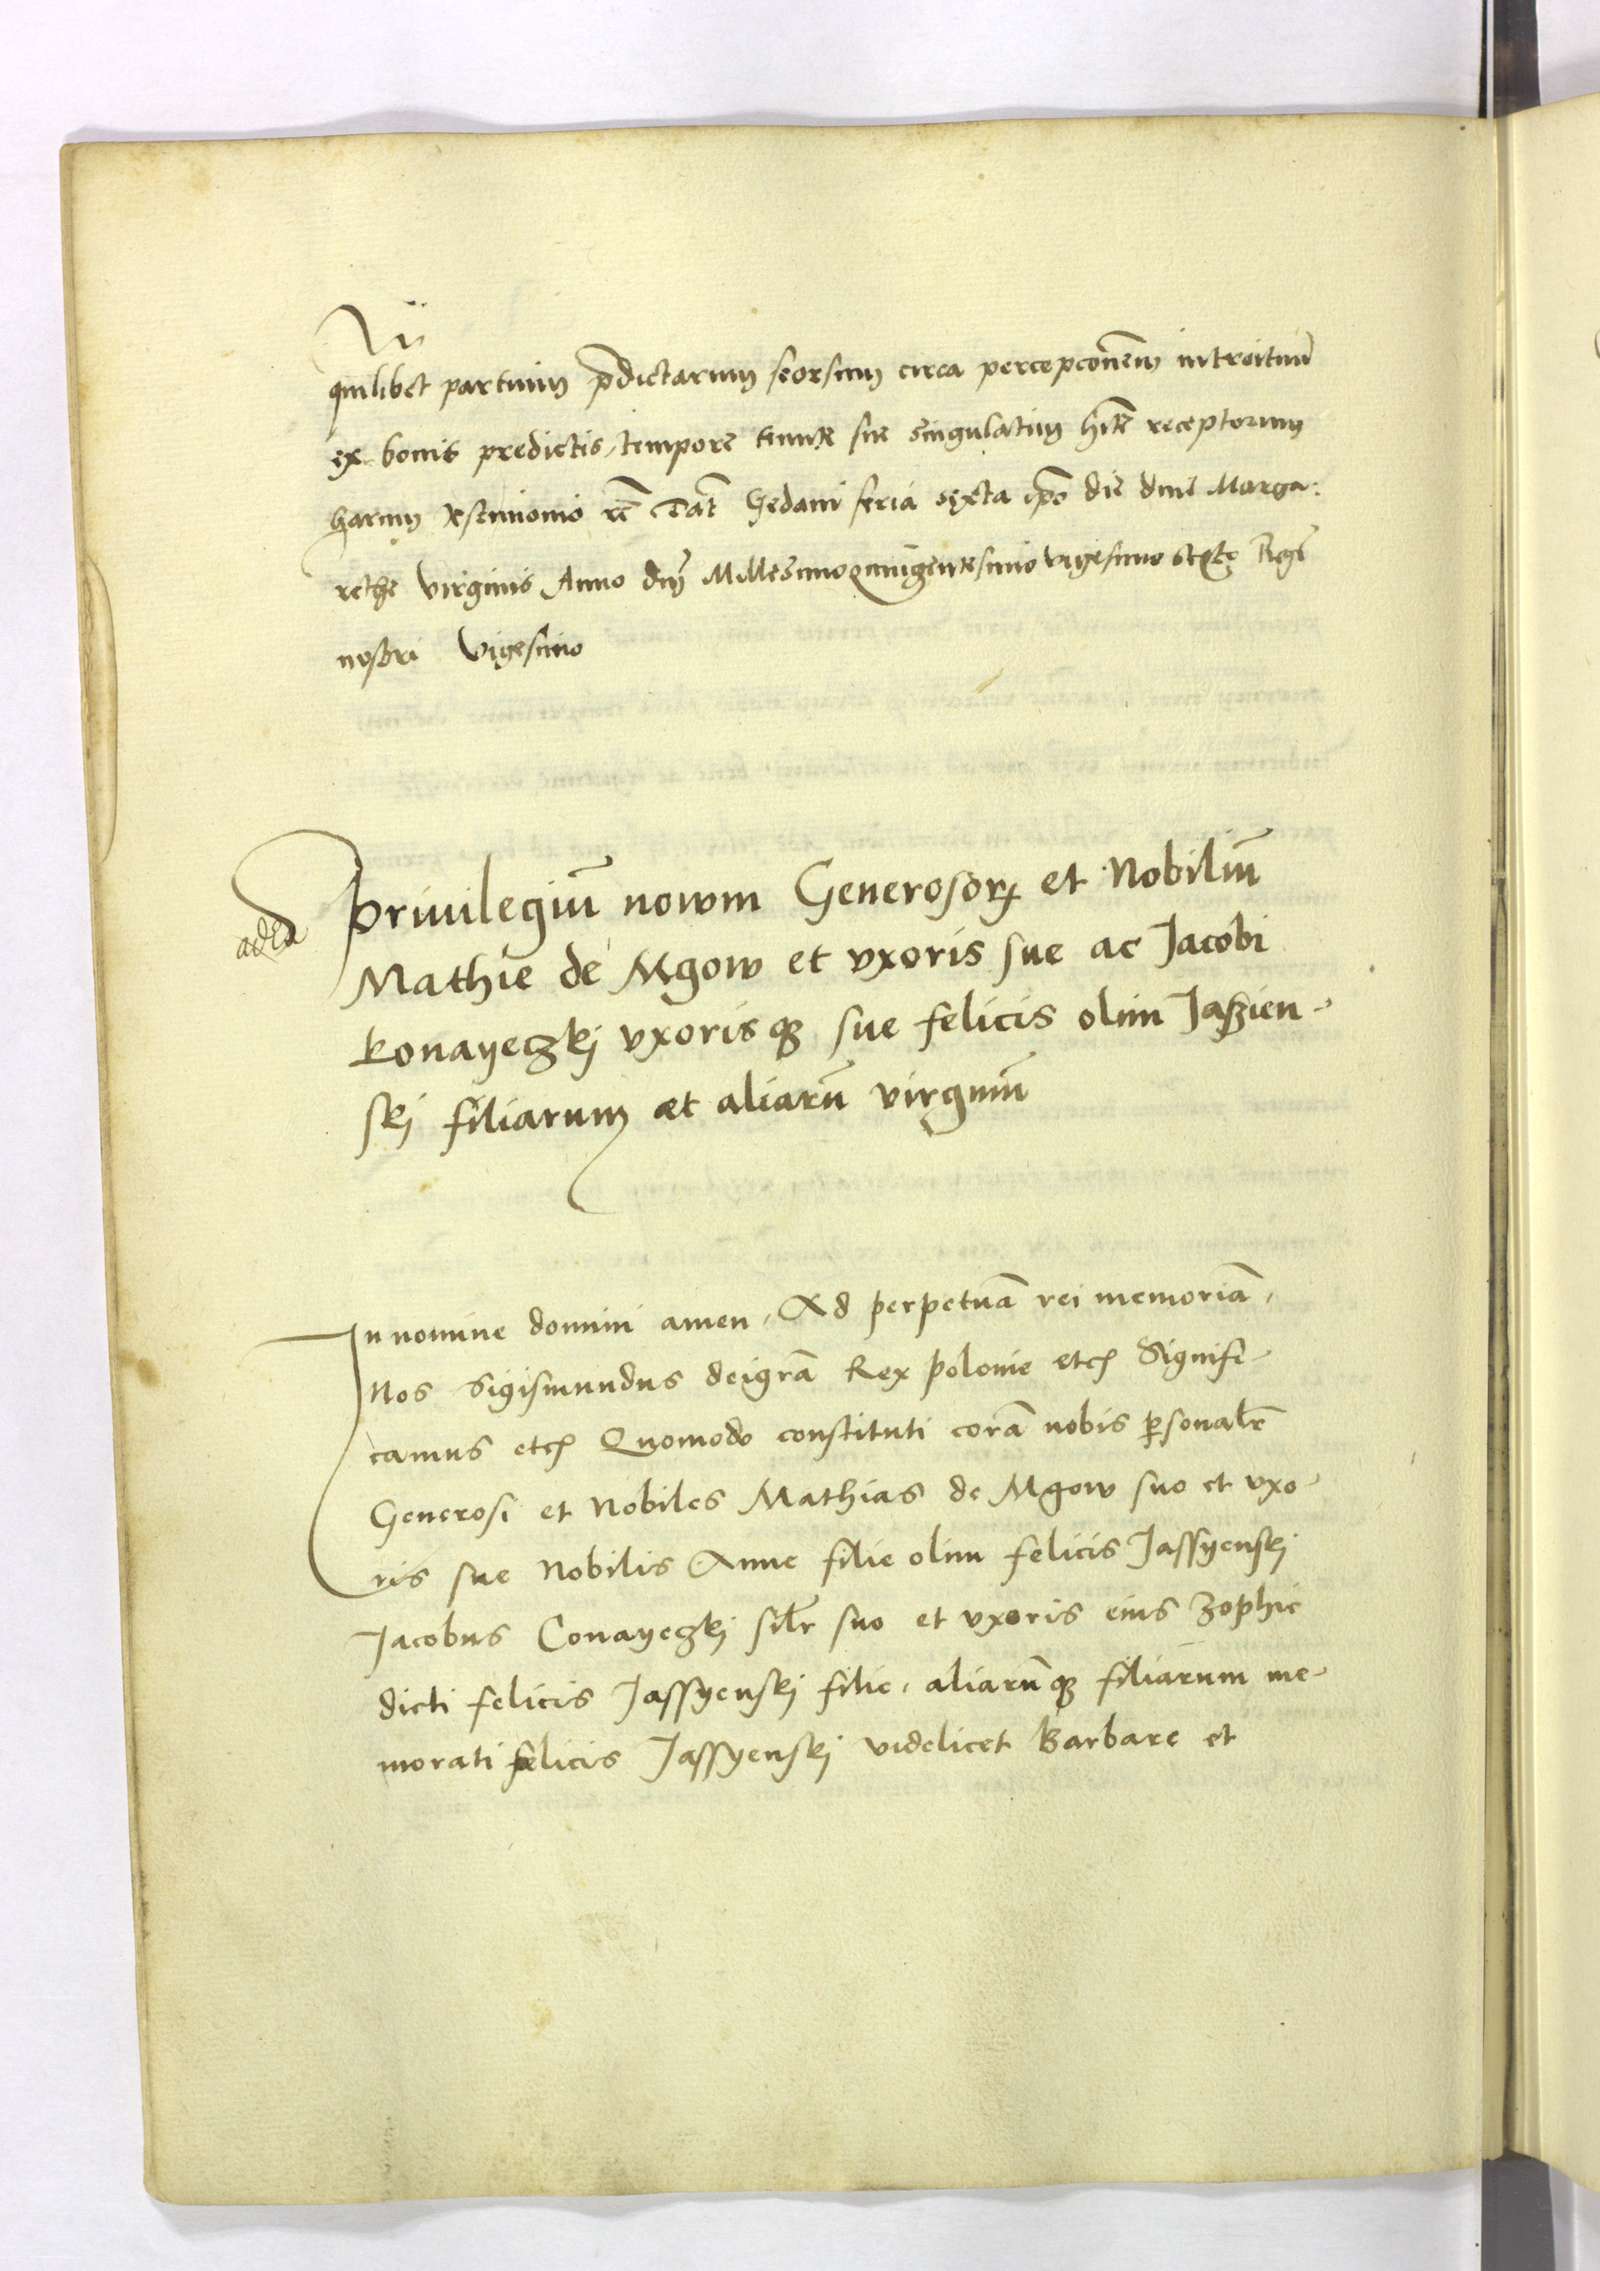 quilibet partium p̄dictarum seorsum circa percepcōnem introituū
ex bonis predictis, tempore sue singulatim receptorum
harum testimonio Dat̄ Gedani feria sexta ip̄o die diue Marga:
rethe virginis Anno dn̄j Millesimoquingentesimo vigesimo sexto Regni
nostri vigesimo
Priuilegiū nowm Generosorꝝ et Nobiliū
Mathie de Mgow et vxoris sue ac Jacobi
Konayeczkj vxorisqꝫ sue felicis olim Jasszien-
skj filiarum et aliarū virginū
In nomine domini amen, Ad perpetuā rei memoriā,
Nos Sigismundus dei gr̄a Rex polonie etc Signifi-
camus etc Quomodo constituti corā nobis ꝑsonalr̄
Generosi et Nobiles Mathias de Mgow suo et vxo-
ris sue Nobilis Anne filie olim felicis Jassyenskj
Jacobus Conayeczkj silr̄ suo et vxoris eius Zophie
dicti felicis Jassyenskj filie, aliarūqꝫ filiarum me-
morati felicis Jassyenskj videlicet Barbare et